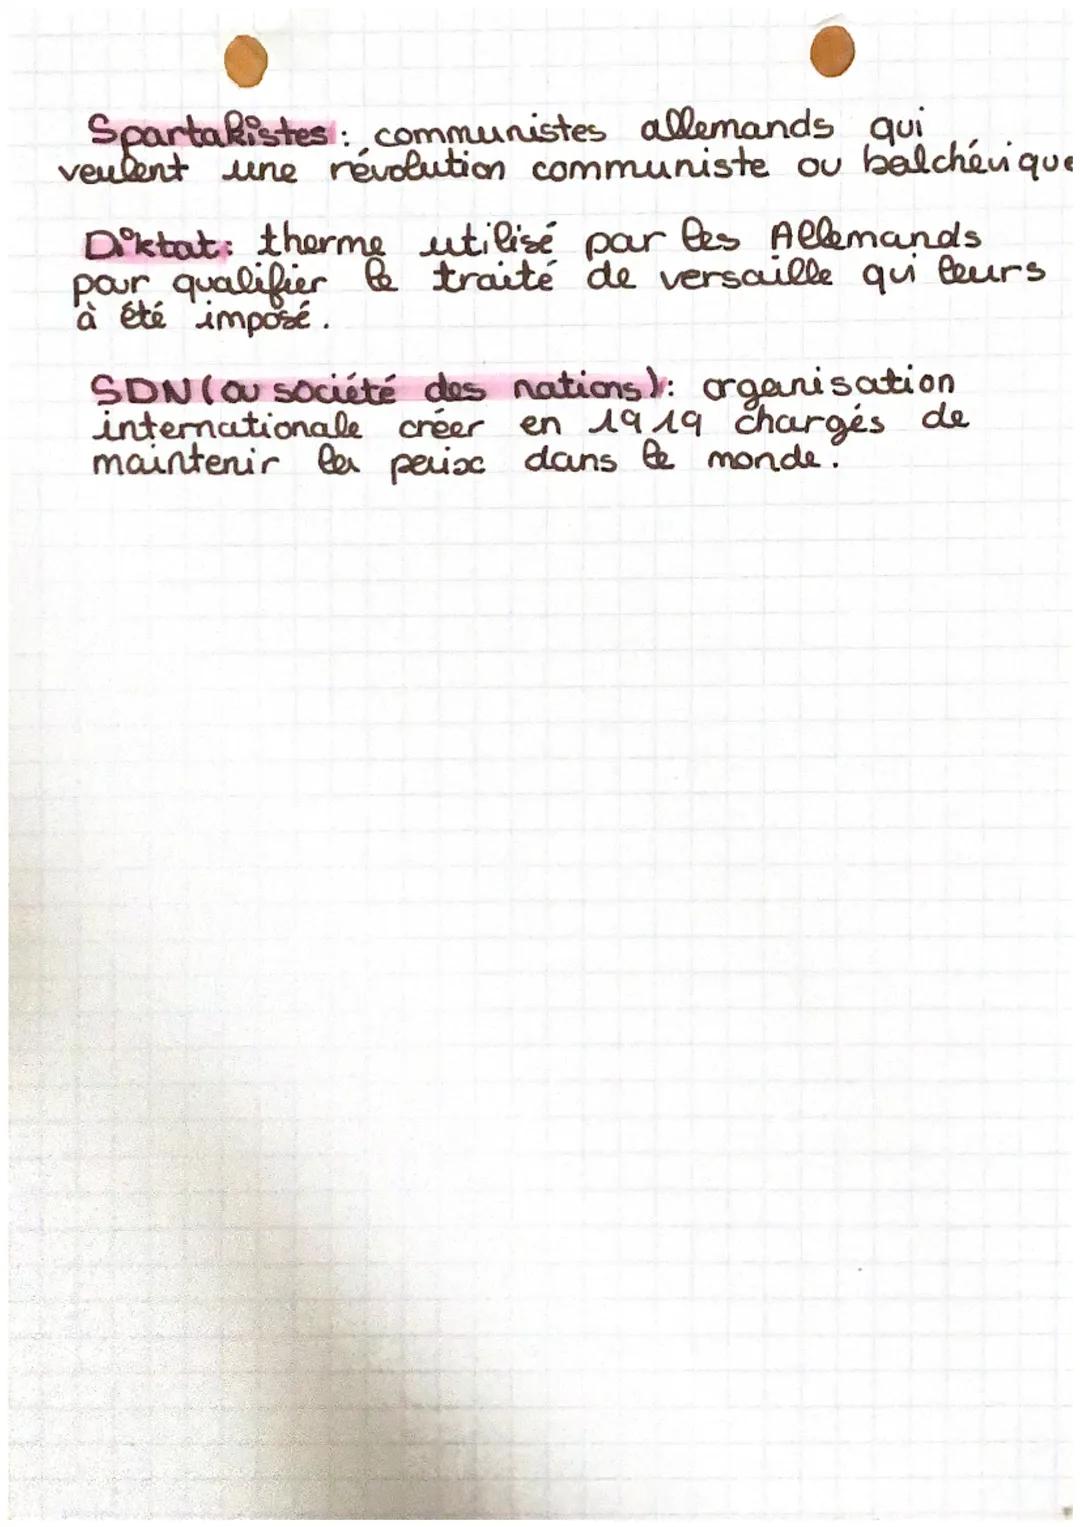 Spartakistes : communistes allemands qui
veulent une révolution communiste ou bolchévique
Diktat : therme utilisé par les Allemands
par qualifier le traité de versaille qui leurs
à été imposé.
SDN (ou société des nations) : organisation
internationale créer en 1919 chargés de
maintenir la paix dans le monde.